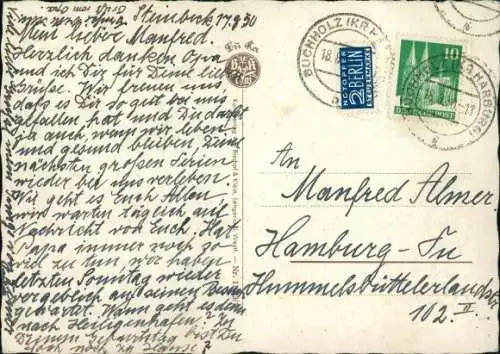 Steinbeck 17.9.50
Mein lieber Manfred.
Herzlich danken Opa
und ich Dir für Deine lieben
Grüße. Wir freuen uns
daß es Dir so gut bei uns
gefallen hat und Du darfst
ja auch, wenn wir leben
und gesund bleiben, Deine
nächsten großen Ferien
wieder bei uns verleben.
Wie geht es Euch Allen,
wir warten täglich auf
Nachricht von Euch. Hat
Papa immer noch so
viel zu tun wir haben
letzten Sonntag wieder
vergeblich auf seinen Besuch
gewartet. Wann geht es denn
nach Heiligenhafen? Zu
Deinem Geburtstag bist Du
doch noch zu Hause?
BUCHHOLZ (KR. HARBURG)
18.
NOTOPFER
2 BERLIN
STEUERMARKE
10
An
Manfred Almer
Hamburg-Fu
Hummelsbüttelerlandstr
102 II